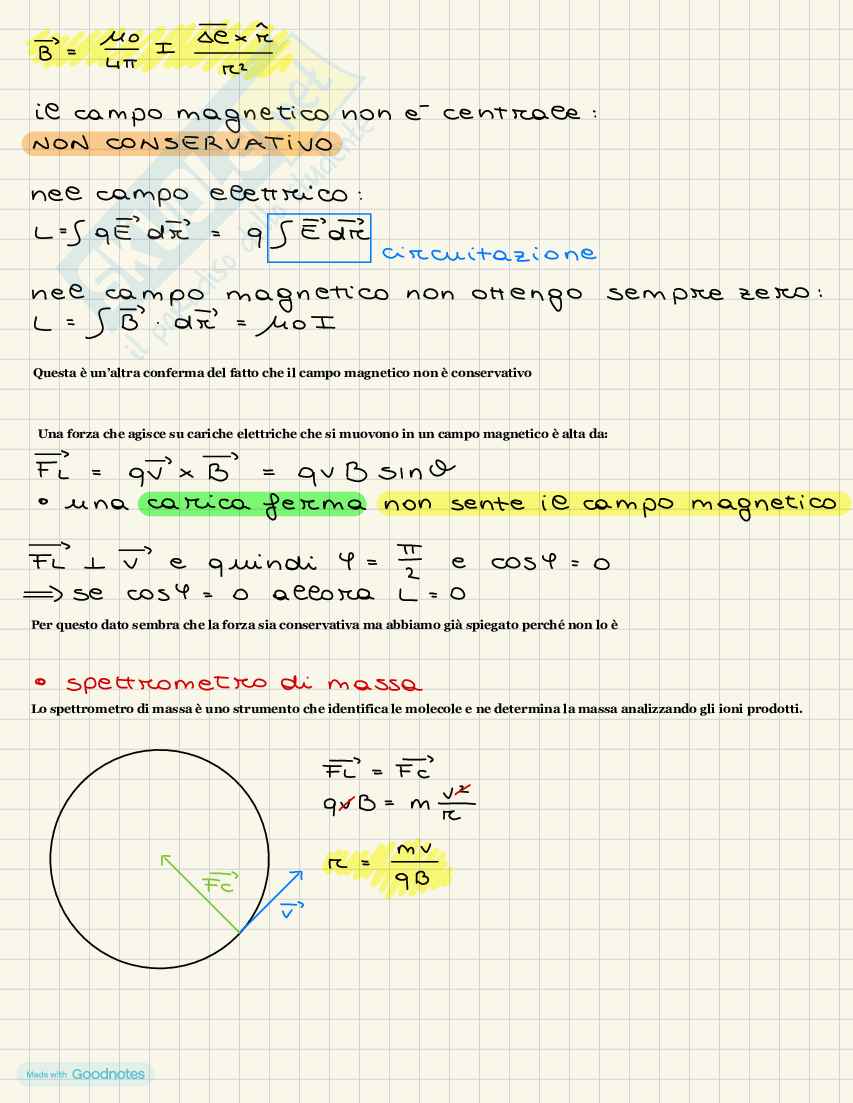 B⃗ = μ0/4π I Δl⃗ × r̂ / r²
il campo magnetico non è centrale :
NON CONSERVATIVO
nel campo elettrico :
L = ∫ q E⃗ dr⃗ = q ∫ E⃗ dr⃗
circuitazione
nel campo magnetico non ottengo sempre zero :
L = ∫ B⃗ · dr⃗ = μ0 I
Questa è un'altra conferma del fatto che il campo magnetico non è conservativo
Una forza che agisce su cariche elettriche che si muovono in un campo magnetico è alta da:
F⃗L = q v⃗ × B⃗ = q v B sinθ
• una carica ferma non sente il campo magnetico
F⃗L ⊥ v⃗ e quindi φ = π/2 e cosφ = 0
⟹ se cosφ = 0 allora L = 0
Per questo dato sembra che la forza sia conservativa ma abbiamo già spiegato perché non lo è
• spettrometro di massa
Lo spettrometro di massa è uno strumento che identifica le molecole e ne determina la massa analizzando gli ioni prodotti.
F⃗L = F⃗c
qvB = m v²/r
r = mv/qB
F⃗c
v⃗
skuola.net
il paradiso dello studente
Made with Goodnotes